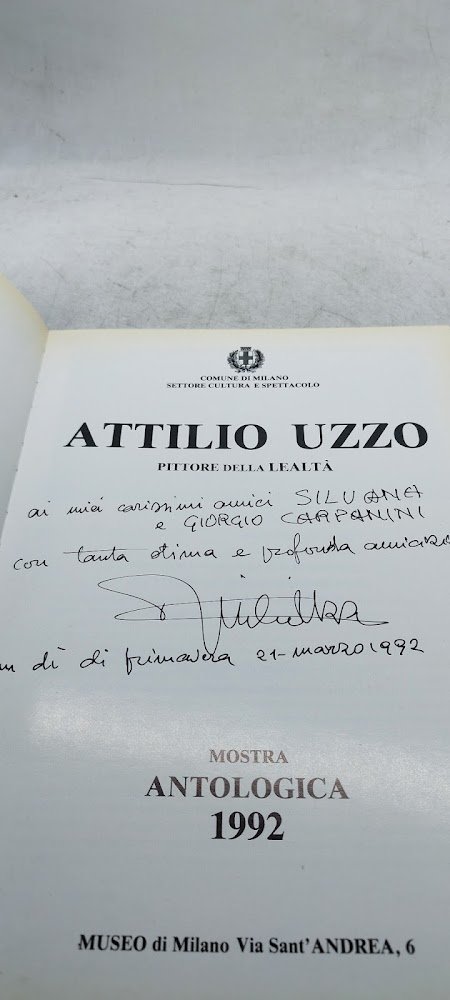 COMUNE DI MILANO
SETTORE CULTURA E SPETTACOLO
ATTILIO UZZO
PITTORE DELLA LEALTÀ
ai miei carissimi amici SILVANA
e GIORGIO CARPANINI
con tanta stima e profonda amicizia
un dì di primavera 21-marzo 1992
MOSTRA
ANTOLOGICA
1992
MUSEO di Milano Via Sant'ANDREA, 6